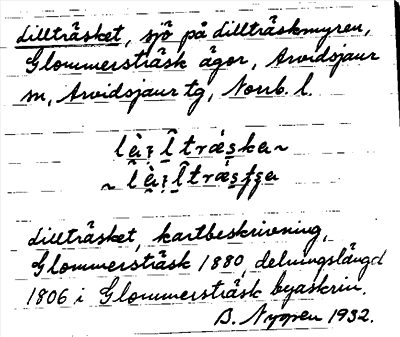 Lillträsket, sjö på Lillträskmyren,
Glommersträsk ägor, Arvidsjaur
sn, Arvidsjaur tg, Norrb. l.
Lillträsket, kartbeskrivning,
Glommersträsk 1880, delningslängd
1806 i Glommersträsk byaskrin.
B. Nygren 1932.